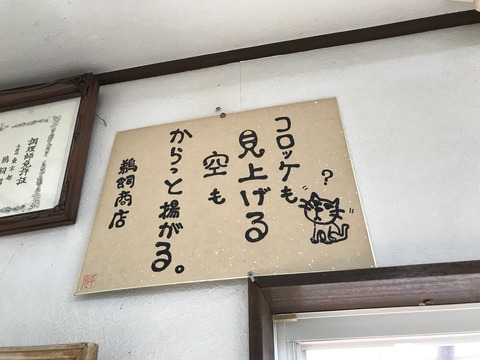 コロッケも
見上げる
空も
からっと揚がる。
鵜飼商店
?
調理師免許証